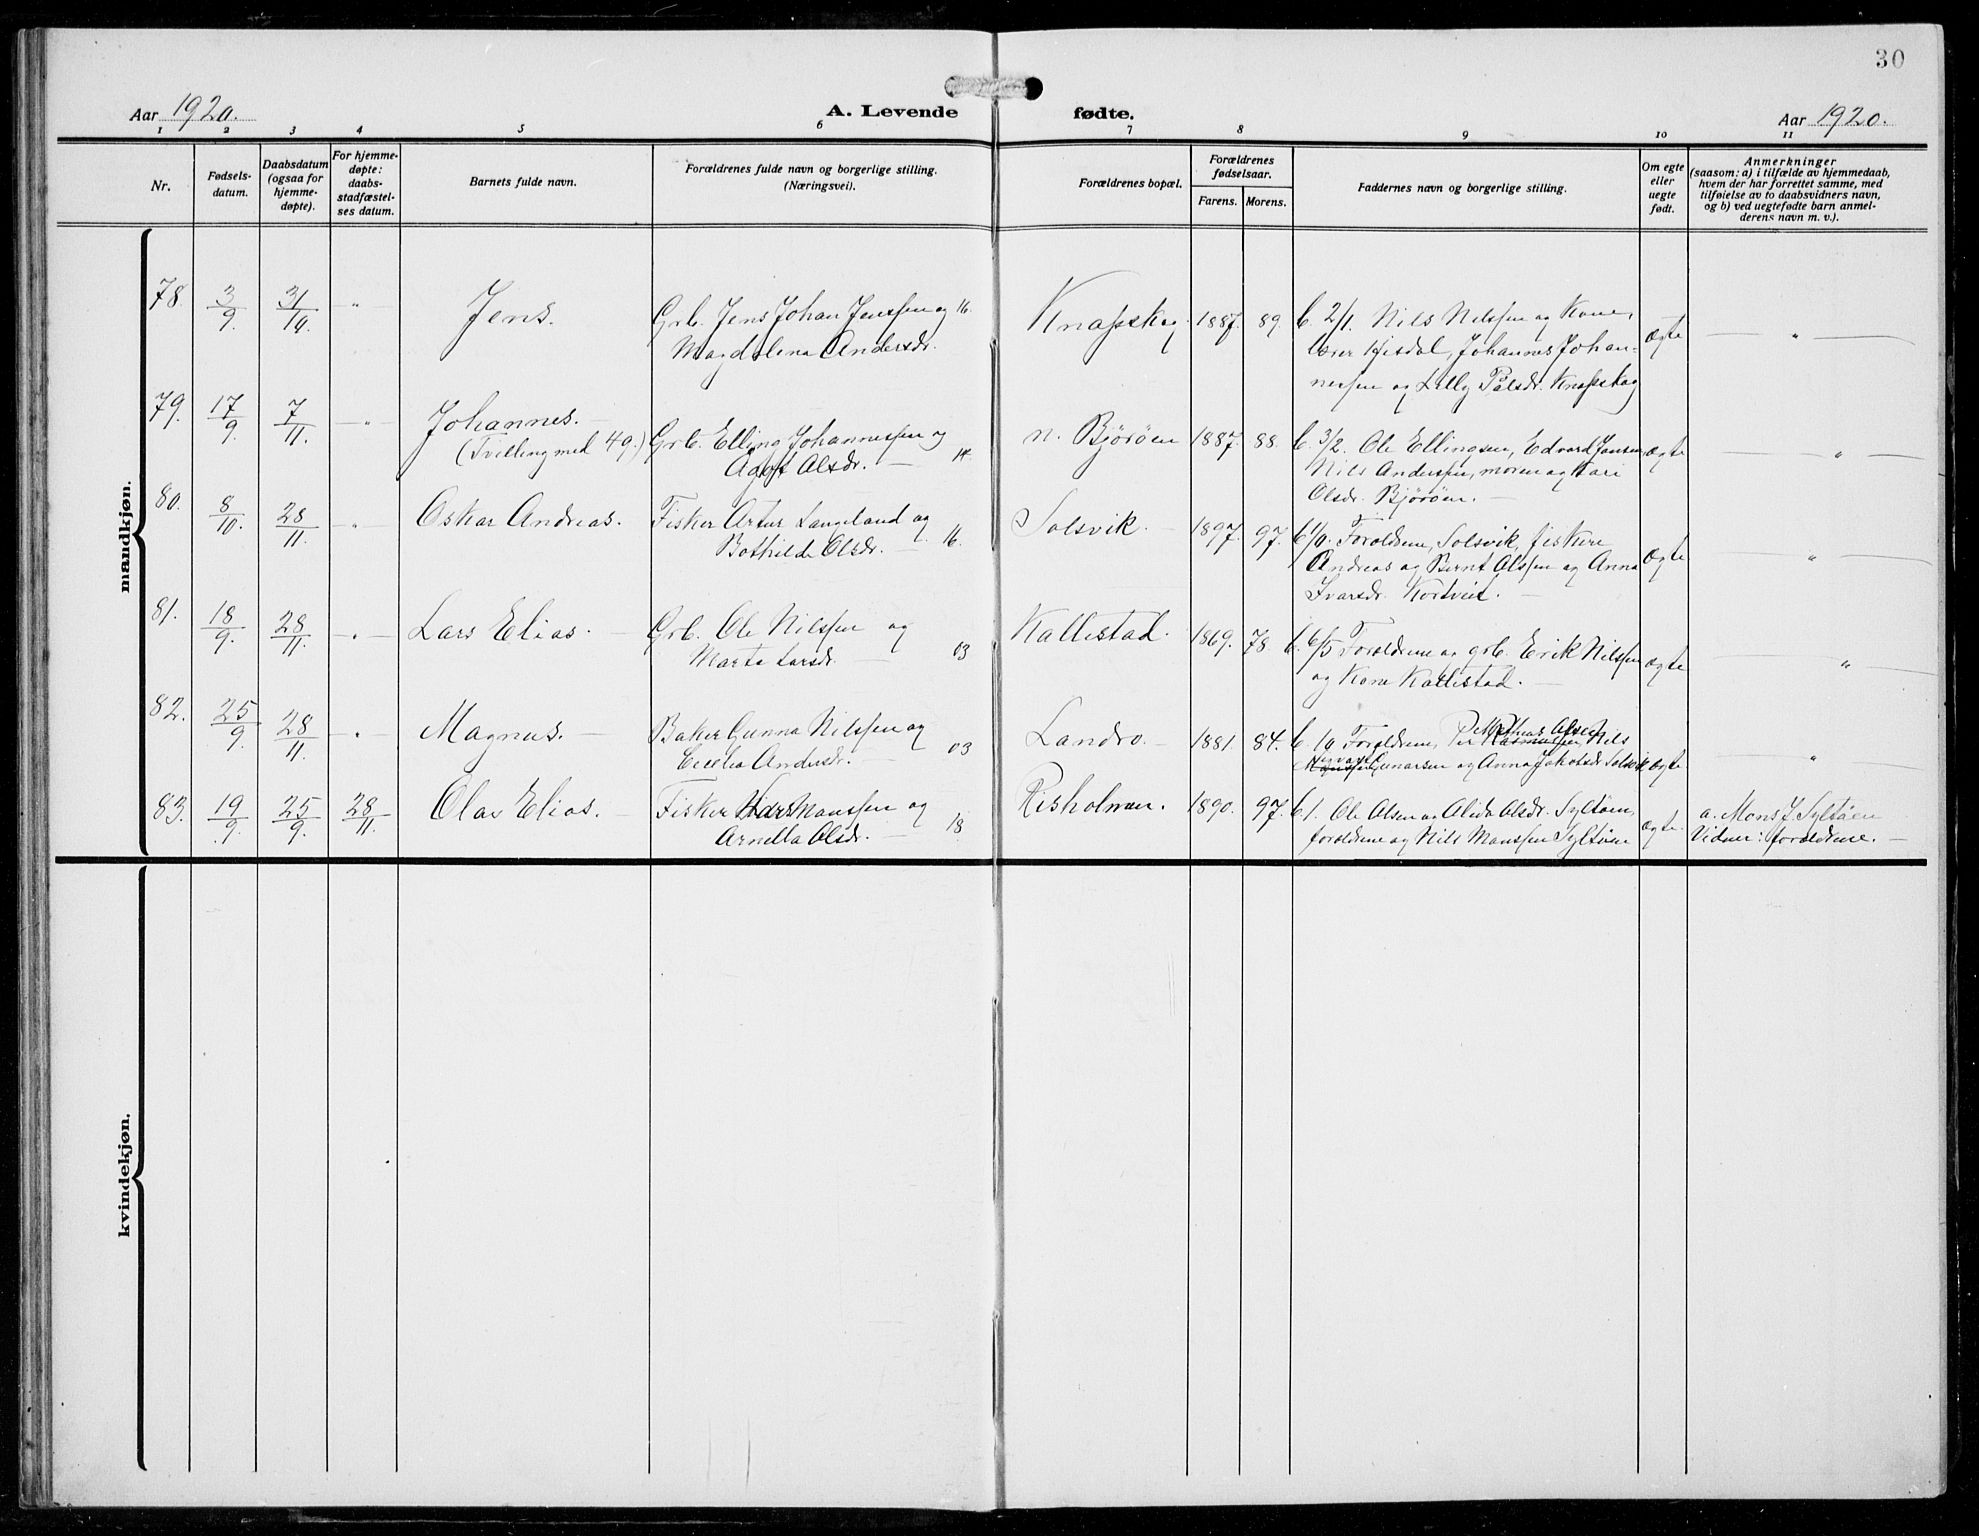 30
Aar 1920.
A. Levende fødte.
Aar 1920.
1 2 3 4 5 6 7 8 9 10 11
Nr.
Fødsels-
datum.
Daabsdatum
(ogsaa for
hjemme-
døpte).
For hjemme-
døpte:
daabs-
stadfæstel-
ses datum.
Barnets fulde navn.
Forældrenes fulde navn og borgerlige stilling.
(Næringsvei).
Forældrenes bopæl.
Forældrenes
fødselsaar.
Farens. Morens.
Faddernes navn og borgerlige stilling.
Om egte
eller
uegte
født.
Anmerkninger
(saasom: a) i tilfælde av hjemmedaab,
hvem der har forrettet samme, med
tilføielse av to daabsvidners navn,
og b) ved uegtefødte barn anmel-
derens navn m. v.).
mandkjøn.
78. 3/9. 31/10. - " - Jens. Grb. Jens Johan Jenssen og 16. Knapskog. 1887. 89. b. 2/1. Nils Nilssen og Kone,
Magdalena Andersdr. Hisdal, Johannes Johan- ægte - " -
nessen og Lilly Pålsdr. Knapskog
79. 17/9. 7/11. - " - Johannes. -
(Tvilling med 49.) Grb. Elling Johannessen og n. Bjorøen 1887. 88. b. 3/2. Ole Ellingsen, Edvard Jansen, ægte - " -
Agot Olsdr. - 14. Nils Anderssen, moren og Kari
Olsdr. Bjorøen. -
80. 8/10. 28/11. - " - Oskar Andreas. Fisker Artur Langeland og Solsvik. - 1897. 97. b 1/0. Foroldrene, Solsvik, fiskere
Bothilde Olsdr. - 16. Andreas og Bernt Olssen og Anna ægte - " -
Ivarsdr. Kortveit. -
81. 18/9. 28/11. - " - Lars Elias. - Grb. Ole Nilssen og Kallestad. 1869. 78. b. 6/5 Foroldrene og grb. Erik Nilssen
Marta Larsdr. - 03 og Kone Kallestad. - ægte - " -
82. 25/9. 28/11. - " - Magnus. - Baker Gunnar Nilssen og Landro. - 1881. 84. b. 10 Foroldrene, Per Rasmussen, Nils
Cecilia Andersdr. - 03 Gunarsen og Anna Jakobsdr Solsvik ægte - " -
83. 19/9. 25/9. 28/11. Olav Elias. - Fisker Lars Monssen og Risholmen. 1890. 97. b. 1. Ole Olsen og Alida Olsdr. Syltøen, a. Mons J. Syltøen
Arnetta Olsdr. - 18. foroldrene og Nils Monssen Syltøen ægte. Vidner: foroldrene. -
kvindekjøn.